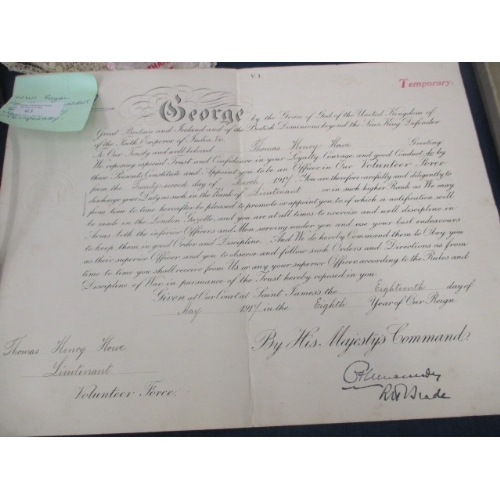 Temporary.
George by the Grace of God, of the United Kingdom of
Great Britain and Ireland and of the British Dominions beyond the Seas King, Defender
of the Faith, Emperor of India, &c.
To Our Trusty and well beloved Thomas Henry Howe Greeting
We reposing especial Trust and Confidence in your Loyalty, Courage, and good Conduct, do by
these Presents Constitute and Appoint you to be an Officer in Our Volunteer Force
from the day of 1917. You are therefore carefully and diligently to
discharge your Duty as such in the Rank of Lieutenant or in such higher Rank as We may
from time to time hereafter be pleased to promote or appoint you to, of which a notification will
be made in the London Gazette, and you are at all times to exercise and well discipline in
Arms both the inferior Officers and Men serving under you and use your best endeavours
to keep them in good Order and Discipline. And We do hereby Command them to Obey you
as their superior Officer and you to observe and follow such Orders and Directions as from
time to time you shall receive from Us, or any your superior Officer, according to the Rules and
Discipline of War, in pursuance of the Trust hereby reposed in you.
Given at Our Court at Saint James's the Eighteenth day of
May 1917 in the Eighth Year of Our Reign
By His Majesty's Command
Thomas Henry Howe
Lieutenant
Volunteer Force.